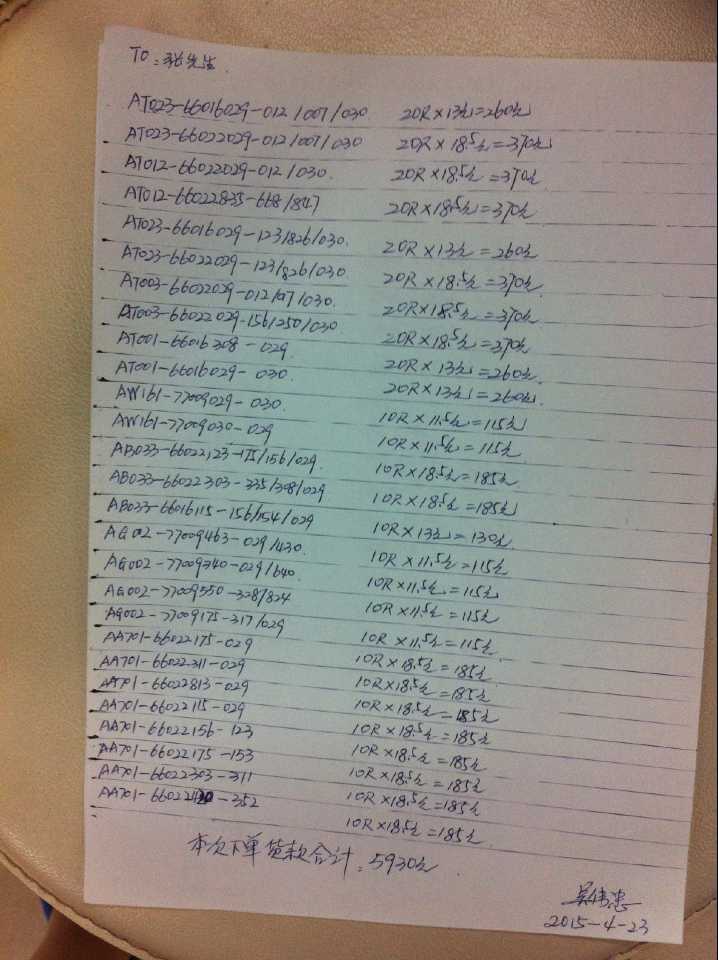 TO:张先生
AT023-66016029-012/007/030 20R×13元=260元
AT023-66022029-012/007/030 20R×18.5元=370元
AT012-66022029-012/030. 20R×18.5元=370元
AT012-66022835-668/847 20R×18.5元=370元
AT023-66016029-123/826/030. 20R×13元=260元
AT023-66022029-123/826/030 20R×18.5元=370元
AT003-66022029-012/07/030. 20R×18.5元=370元
AT003-66022029-156/250/030 20R×18.5元=370元
AT001-66016308-029 20R×13元=260元
AT001-66016029-030 20R×13元=260元
AW161-77009029-030. 10R×11.5元=115元
AW161-77009030-029 10R×11.5元=115元
AB033-66022123-175/156/029. 10R×18.5元=185元
AB033-66022303-335/398/029 10R×18.5元=185元
AB033-66016115-156/154/029 10R×13元=130元
AG002-77009463-029/430. 10R×11.5元=115元
AG002-77009740-029/640. 10R×11.5元=115元
AG002-77009550-328/824 10R×11.5元=115元
AG002-77009175-317/029 10R×11.5元=115元
AA701-66022175-029 10R×18.5元=185元
AA701-66022311-029 10R×18.5元=185元
AA701-66022813-029 10R×18.5元=185元
AA701-66022115-029 10R×18.5元=185元
AA701-66022156-123 10R×18.5元=185元
AA701-66022175-153 10R×18.5元=185元
AA701-66022303-311 10R×18.5元=185元
AA701-66022120-352 10R×18.5元=185元
本次下单货款合计:5930元
吴伟忠
2015-4-23